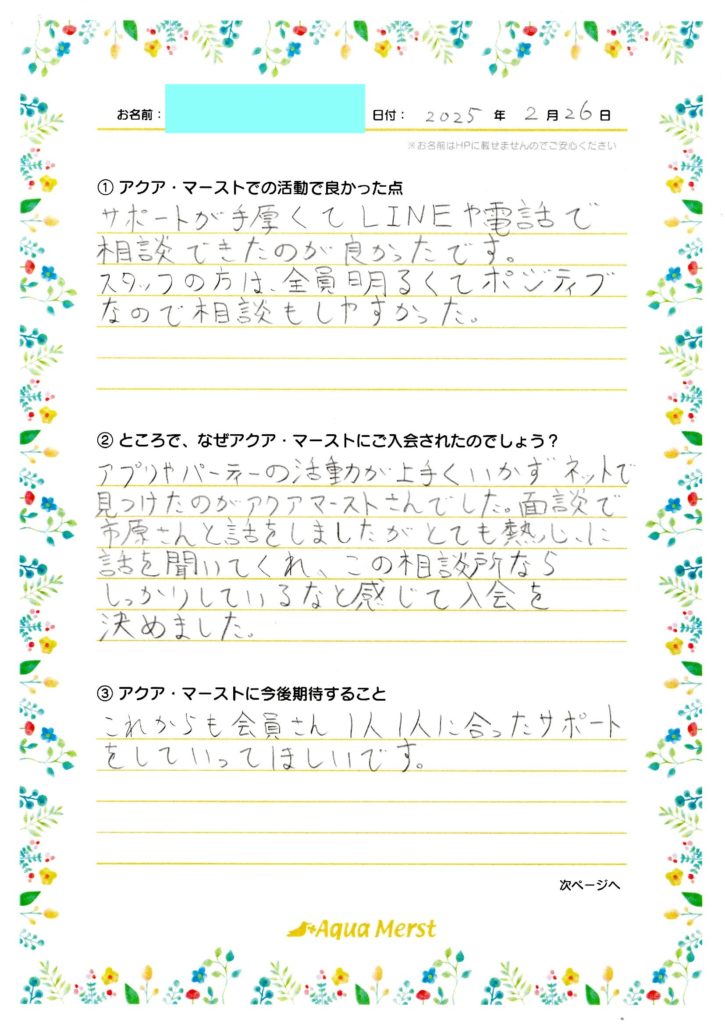 お名前: 日付: 2025 年 2 月 26 日
※お名前はHPに載せませんのでご安心ください
① アクア・マーストでの活動で良かった点
サポートが手厚くてLINEや電話で
相談できたのが良かったです。
スタッフの方は、全員明るくてポジティブ
なので相談もしやすかった。
② ところで、なぜアクア・マーストにご入会されたのでしょう?
アプリやパーティーの活動が上手くいかずネットで
見つけたのがアクアマーストさんでした。面談で
市原さんと話をしましたがとても熱心に
話を聞いてくれ、この相談所なら
しっかりしているなと感じて入会を
決めました。
③ アクア・マーストに今後期待すること
これからも会員さん1人1人に合ったサポート
をしていってほしいです。
次ページへ
Aqua Merst